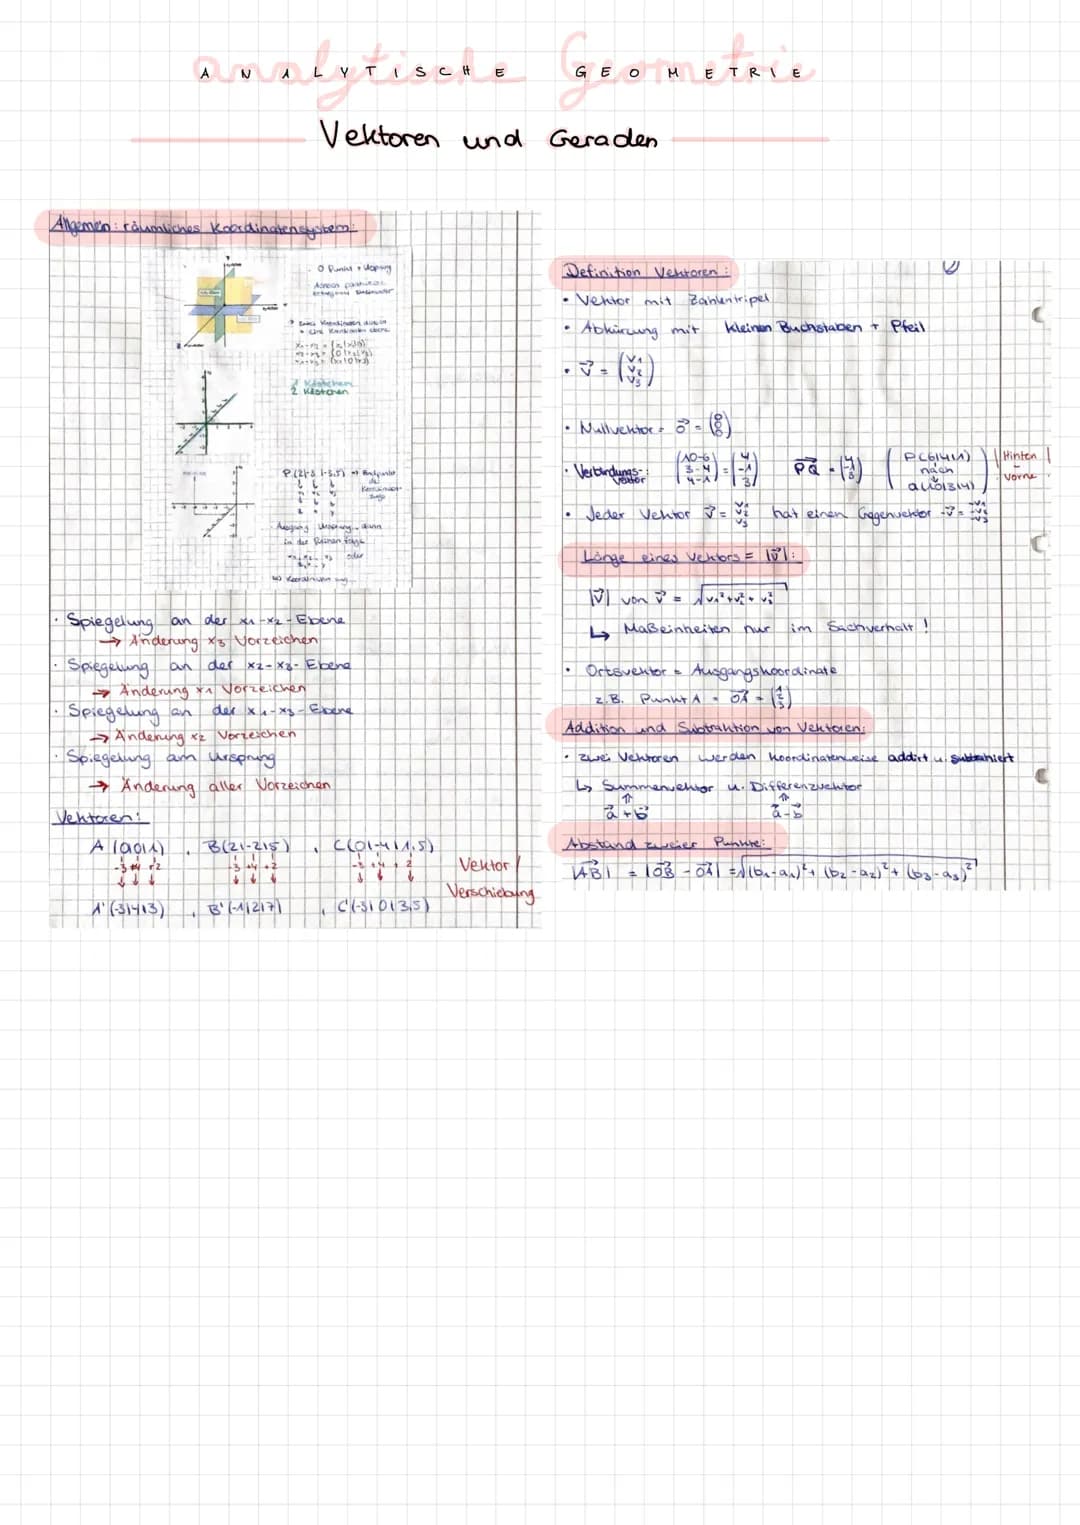 analytische Geometrie
ANALYTISCHE GEOMETRIE
Vektoren und Geraden
Allgemein: räumliches Koordinatensystem:
O Punkt = Ursprung
2 Kästchen
P(2|-3|-5,5) → Endpunkt
· Spiegelung an der x1-x2-Ebene
→ Änderung x3 Vorzeichen
· Spiegelung an der x2-x3-Ebene
→ Änderung x1 Vorzeichen
· Spiegelung an der x1-x3-Ebene
→ Änderung x2 Vorzeichen
· Spiegelung am Ursprung
→ Änderung aller Vorzeichen
Vektoren:
A(0|0|1), B(2|-2|5), C(0|-4|1,5)
-3 +4 +2 -3 +4 +2 -3 +4 +2
Vektor/
Verschiebung
A'(-3|4|3), B'(-1|2|7), C'(-3|0|3,5)
Definition Vektoren:
• Vektor mit Zahlentripel
• Abkürzung mit kleinen Buchstaben + Pfeil
• v⃗ = (v1 v2 v3)
• Nullvektor = o⃗ = (0 0 0)
• Verbindungs-vektor: (10-6 3-4 4-1) = (4 -1 3) PQ⃗ = (4 -1 3) (P(6|4|1) nach Q(10|3|4)) Hinten - Vorne
• Jeder Vektor v⃗ = v1 v2 v3 hat einen Gegenvektor -v⃗ = -v1 -v2 -v3
Länge eines Vektors = |v⃗|:
|v⃗| von v⃗ = √v1²+v2²+v3²
↳ Maßeinheiten nur im Sachverhalt!
• Ortsvektor = Ausgangskoordinate
z.B. Punkt A = OA⃗ = (1 2 3)
Addition und Subtraktion von Vektoren:
• zwei Vektoren werden koordinatenweise addirt u. subtrahiert
↳ Summenvektor u. Differenzvektor
a⃗+b⃗ a⃗-b⃗
Abstand zweier Punkte:
|AB⃗| = |OB⃗ - OA⃗| = √(b1-a1)²+(b2-a2)²+(b3-a3)²